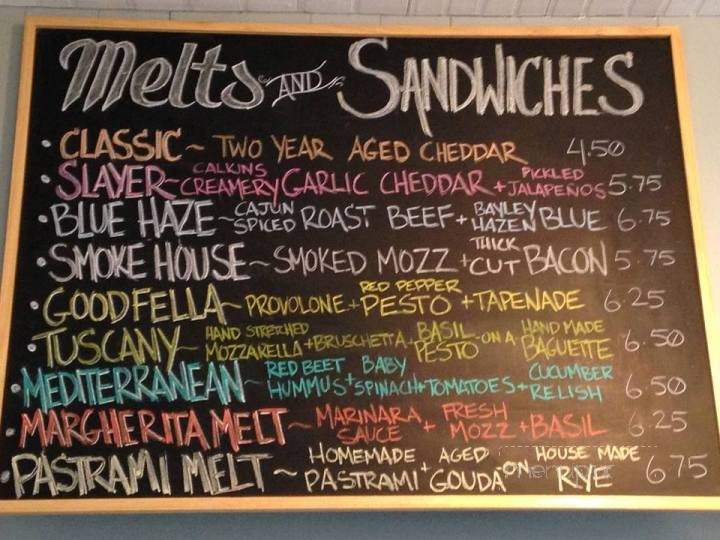 Melts AND SANDWICHES
• CLASSIC ~ TWO YEAR AGED CHEDDAR 4.50
• SLAYER ~ CALKINS CREAMERY GARLIC CHEDDAR + PICKLED JALAPEÑOS 5.75
• BLUE HAZE ~ CAJUN SPICED ROAST BEEF + BAYLEY HAZEN BLUE 6.75
• SMOKE HOUSE ~ SMOKED MOZZ + THICK CUT BACON 5.75
• GOODFELLA ~ PROVOLONE + RED PEPPER PESTO + TAPENADE 6.25
• TUSCANY ~ HAND STRETCHED MOZZARELLA + BRUSCHETTA + BASIL PESTO - ON A HAND MADE BAGUETTE 6.50
• MEDITERRANEAN ~ RED BEET HUMMUS + BABY SPINACH + TOMATOES + CUCUMBER RELISH 6.50
• MARGHERITA MELT ~ MARINARA SAUCE + FRESH MOZZ + BASIL 6.25
• PASTRAMI MELT ~ HOMEMADE PASTRAMI + AGED GOUDA - ON HOUSE MADE RYE 6.75